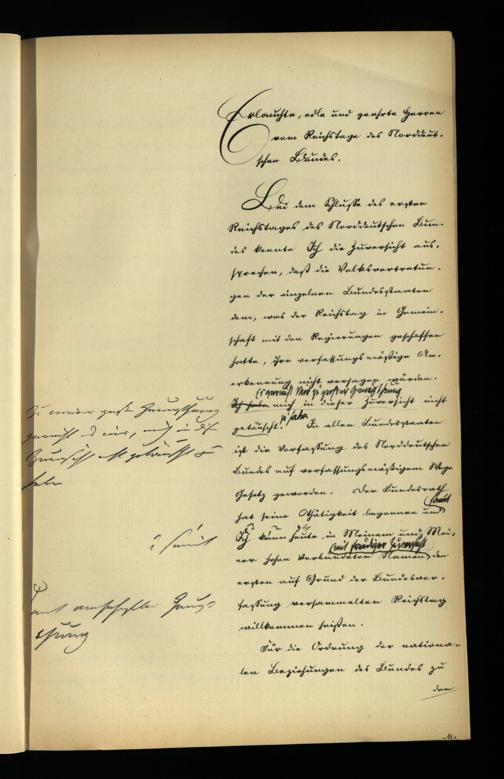 Erlauchte, edle und geehrte Herren
vom Reichstage des Norddeut-
schen Bundes.
Bei dem Schlusse des ersten
Reichstages des Norddeutschen Bun-
des konnte Ich die Zuversicht aus-
sprechen, daß die Volksvertretun-
gen der einzelnen Bundesstaaten
dem, was der Reichstag in Gemein-
schaft mit den Regierungen geschaffen
hatte, ihre verfassungsmäßige An-
erkennung nicht versagen würden.
Es gereicht Mir zu großer Genugthuung
Ich habe mich in dieser Zuversicht nicht
getäuscht. zu haben In allen Bundesstaaten
ist die Verfassung des Norddeutschen
Bundes auf verfassungsmäßigem Wege
Gesetz geworden. Der Bundesrath
hat seine Thätigkeit begonnen und
somit
Ich kann heute in Meinem und Mei-
(mit freudiger Zuversicht)
ner hohen Verbündeten Namen den
ersten auf Grund der Bundesver-
fassung versammelten Reichstag
willkommen heißen.
Für die Ordnung der nationa-
len Beziehungen des Bundes zu
den
Zu meiner Genugthuung
gereicht es mir, mich in dieser
Zuversicht nicht getäuscht zu
haben
somit
mit